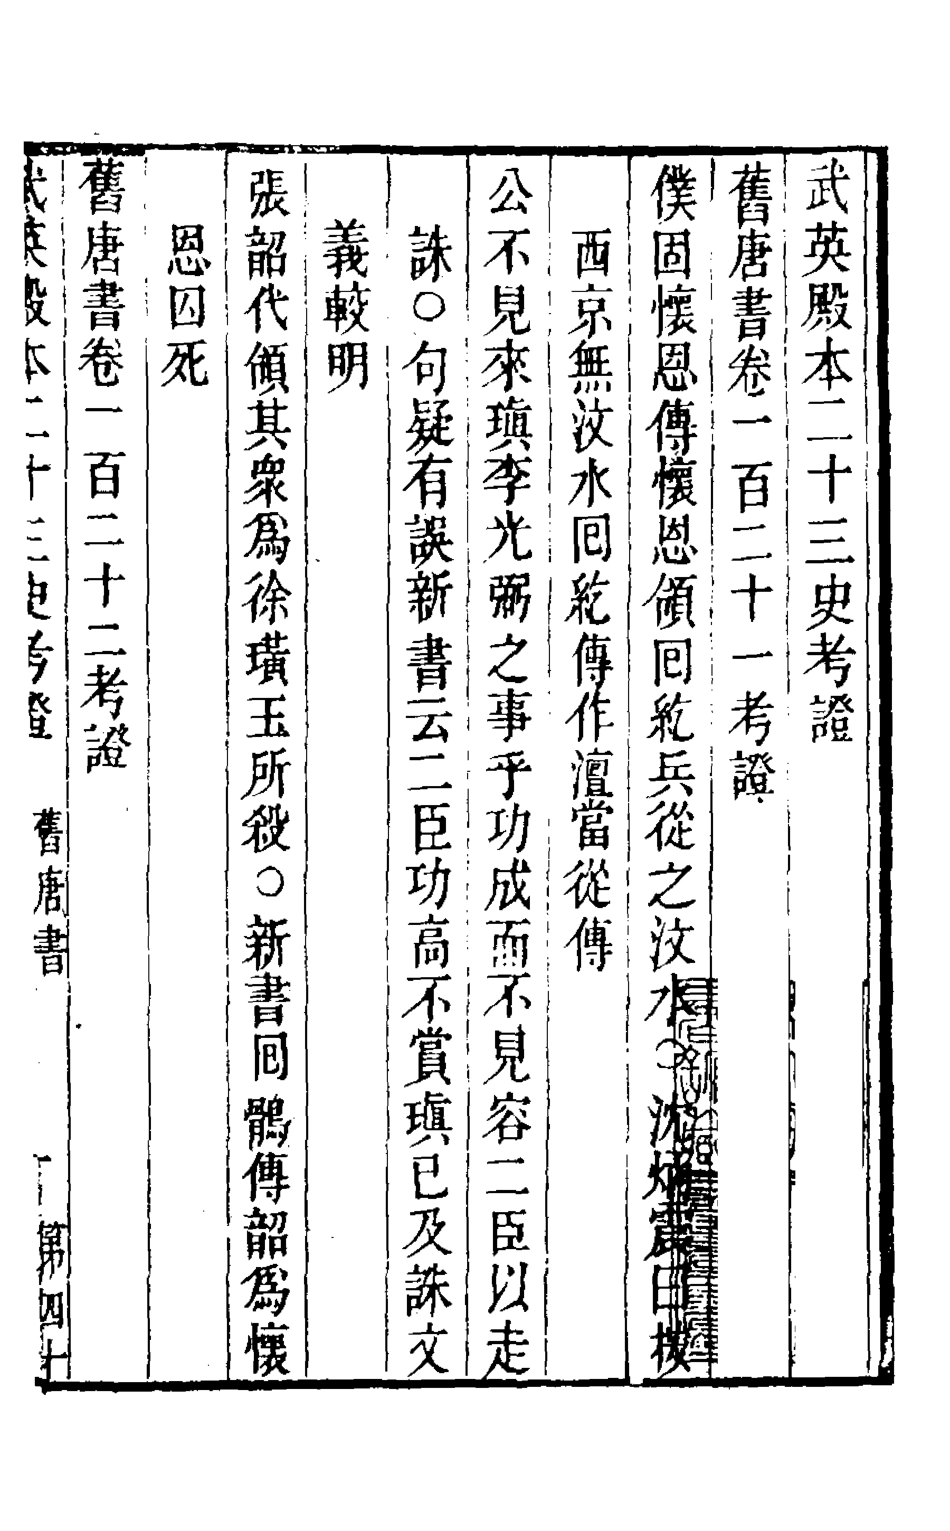 武英殿本二十三史考證
舊唐書卷一百二十一考證
僕固懷恩傳懷恩領回紇兵從之汶水○沈炳震曰按
西京無汶水回紇傳作澶當從傳
公不見來瑱李光弼之事乎功成而不見容二臣以走
誅○句疑有誤新書云二臣功高不賞瑱已及誅文
義較明
張韶代領其衆爲徐璜玉所殺○新書回鶻傳韶爲懷
恩囚死
舊唐書卷一百二十二考證
武英殿本二十三史考證
舊唐書
第四十